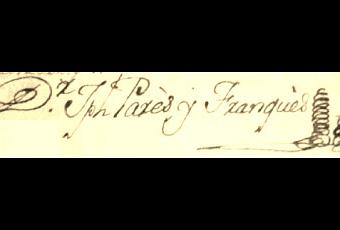 Dr. Jph Parès y Franquès